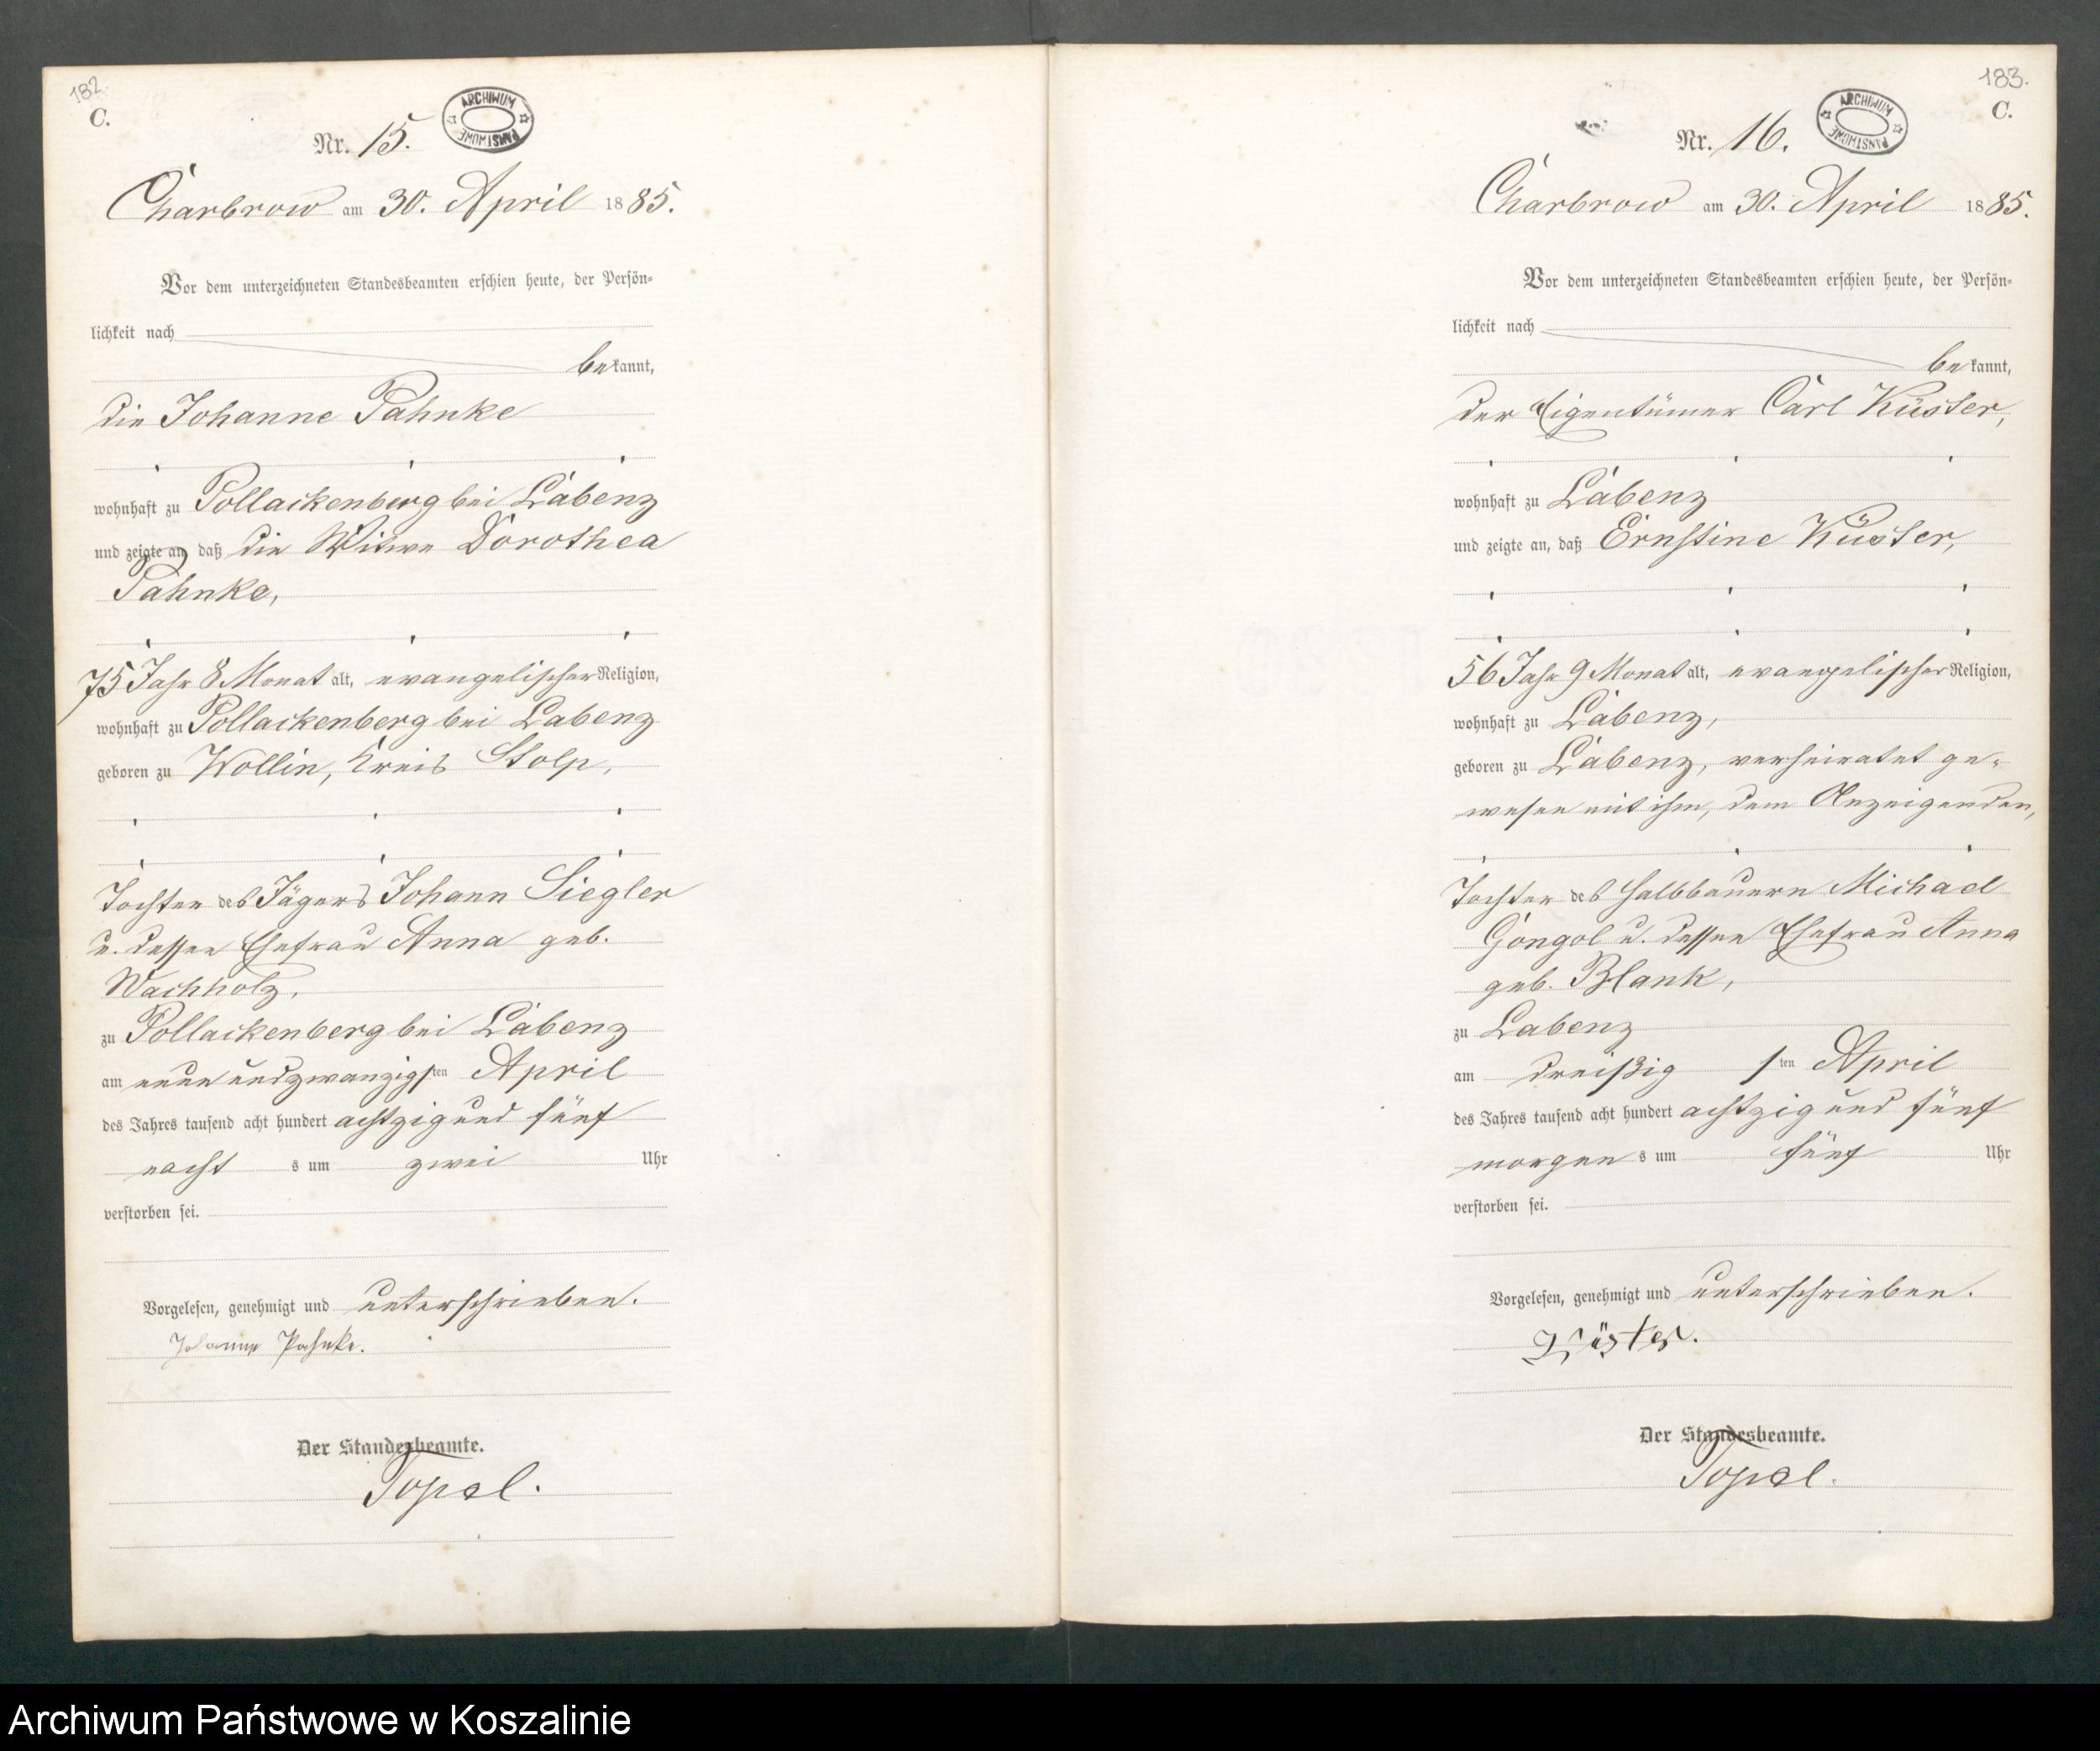 182.
C.
ARCHIWUM PAŃSTWOWE
Nr. 15.
Charbrow am 30. April 1885.
Vor dem unterzeichneten Standesbeamten erschien heute, der Persön-
lichkeit nach
bekannt,
die Johanne Pahnke
wohnhaft zu Pollackenberg bei Labenz
und zeigte an, daß die Witwe Dorothea
Pahnke,
75 Jahr 8 Monat alt, evangelischer Religion,
wohnhaft zu Pollackenberg bei Labenz
geboren zu Wollin, Kreis Stolp,
Tochter des Jägers Johann Siegler
u. dessen Ehefrau Anna geb.
Wachholz,
zu Pollackenberg bei Labenz
am neun und zwanzigsten April
des Jahres tausend acht hundert achtzig und fünf
nachts um zwei Uhr
verstorben sei.
Vorgelesen, genehmigt und unterschrieben.
Johanne Pahnke.
Der Standesbeamte.
Topel.
183.
C.
ARCHIWUM PAŃSTWOWE
Nr. 16.
Charbrow am 30. April 1885.
Vor dem unterzeichneten Standesbeamten erschien heute, der Persön-
lichkeit nach
bekannt,
der Eigentümer Carl Küster,
wohnhaft zu Labenz
und zeigte an, daß Ernstine Küster,
56 Jahr 9 Monat alt, evangelischer Religion,
wohnhaft zu Labenz,
geboren zu Labenz, verheiratet ge-
wesen mit ihm, dem Anzeigenden,
Tochter des Halbbauern Michael
Gongol u. dessen Ehefrau Anna
geb. Blank,
zu Labenz
am dreißigsten April
des Jahres tausend acht hundert achtzig und fünf
morgens um fünf Uhr
verstorben sei.
Vorgelesen, genehmigt und unterschrieben.
Küster.
Der Standesbeamte.
Topel.
Archiwum Państwowe w Koszalinie